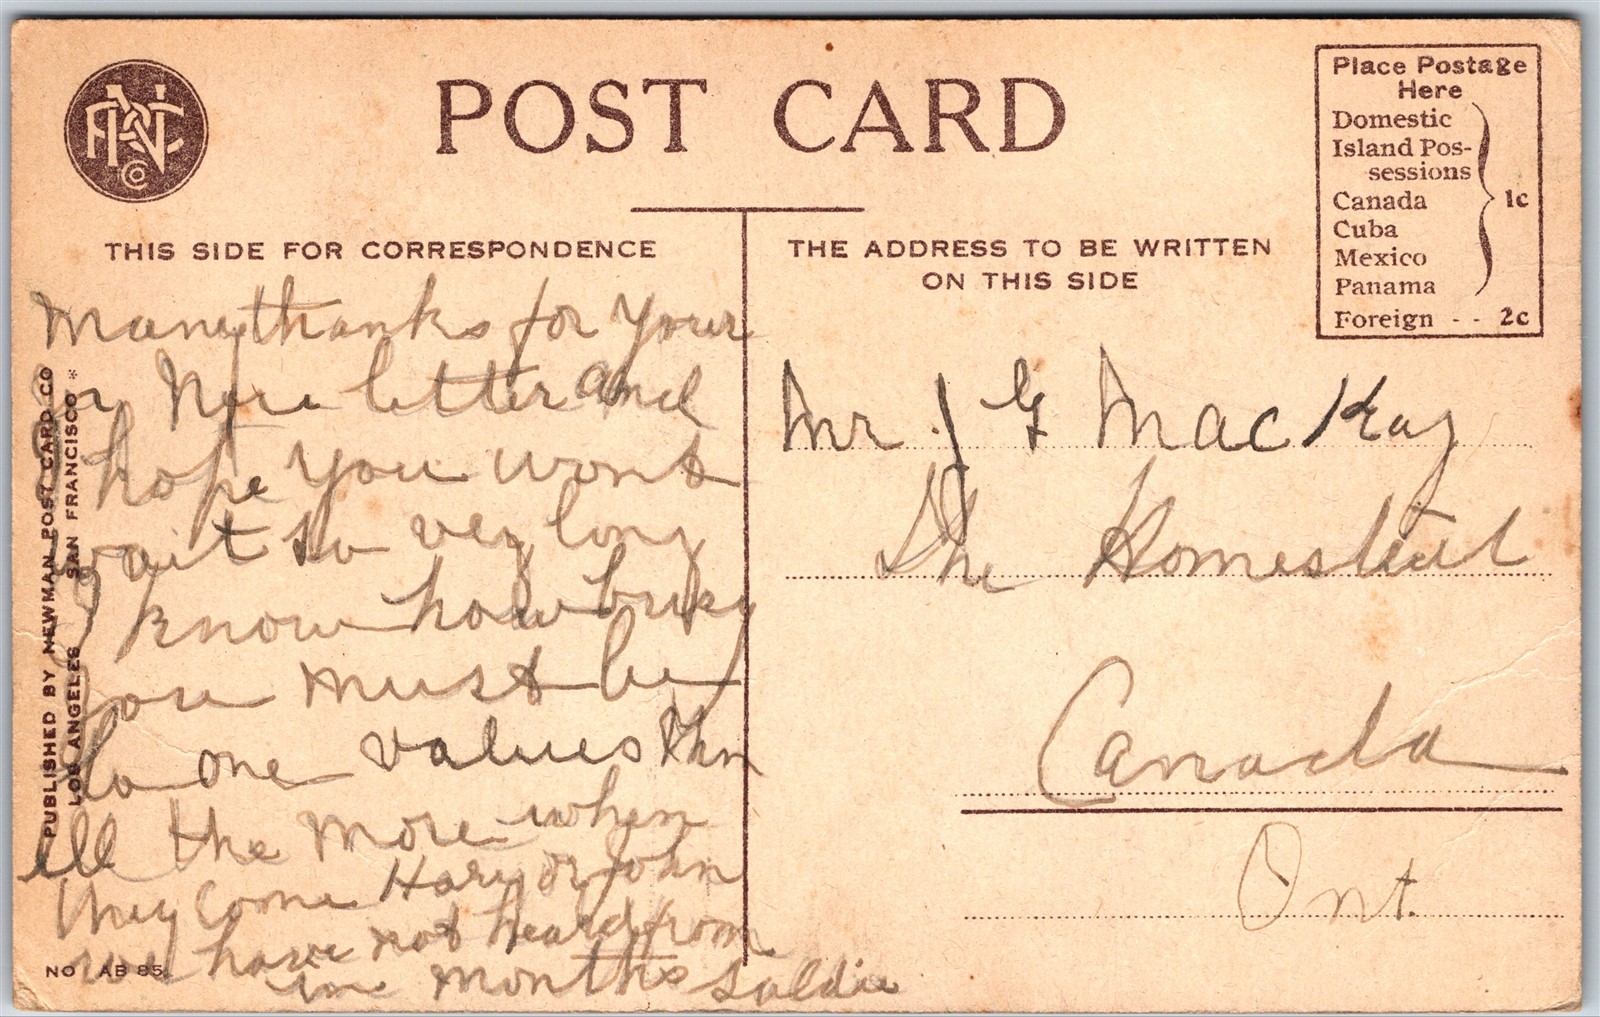 POST CARD
Place Postage
Here
Domestic
Island Pos-
sessions
Canada
Cuba
Mexico
Panama
1c
Foreign - - 2c
THIS SIDE FOR CORRESPONDENCE
THE ADDRESS TO BE WRITTEN
ON THIS SIDE
Many thanks for your
letter and
hope you wont
wait so very long
I know how busy
you must be
So one values them
all the more when
they come Hary or John
we have not heard from
in months Saldie
Mr J G MacKay
The Homestead
Canada
Ont.
PUBLISHED BY NEWMAN POST CARD CO
LOS ANGELES SAN FRANCISCO *
NO AB 85